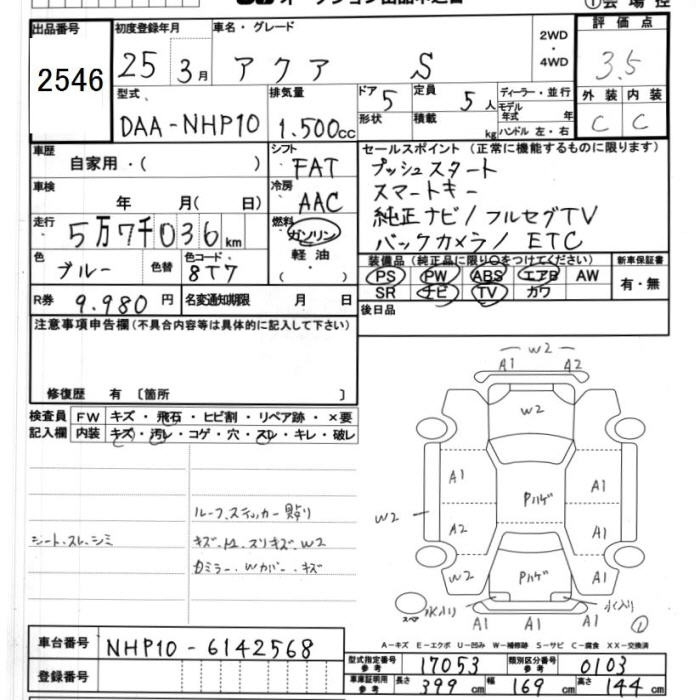 オークション出品申込書
①会場控
出品番号
2546
初度登録年月
25 3月
車名・グレード
アクア S
2WD
・
4WD
評価点
3.5
外装 内装
C C
型式
DAA-NHP10
排気量
1.500cc
ドア 5
定員 5人
形状
積載 kg
ディーラー・並行
モデル年式 年
ハンドル 左・右
車歴 自家用・( )
シフト FAT
車検 年 月( 日)
冷房 AAC
走行 5万7千036km
燃料 ガソリン
軽油
・
色 ブルー 色替
色コード 8T7
R券 9.980円 名変通知期限 月 日
セールスポイント(正常に機能するものに限ります)
プッシュスタート
スマートキー
純正ナビ/フルセグTV
バックカメラ/ETC
装備品(純正品に限り○をつけてください)
PS PW ABS エアB AW
SR ナビ TV カワ
新車保証書
有・無
後日品
注意事項申告欄(不具合内容等は具体的に記入して下さい)
修復歴 有 〔箇所 〕
検査員記入欄
FW キズ・飛石・ヒビ割・リペア跡・×要
内装 キズ・汚レ・コゲ・穴・スレ・キレ・破レ
シート.スレ.シミ
ルーフ.ステッカー貼り
キズ.
スリキズ.W2
ミラー.Wカバー.キズ
W2
A1 A2
W2
A1 A1
W2 A2 Pハゲ A1
W2 Pハゲ A1
スペア
水入り 水入り
A1 A1 A1
①
A－キズ E－エクボ U－凹み W－補修跡 S－サビ C－腐食 XX－交換済
車台番号 NHP10-6142568
登録番号
型式指定番号 参考 17053 類別区分番号 参考 0103
車庫証明用 参考 長さ 399cm 幅 169cm 高さ 144cm